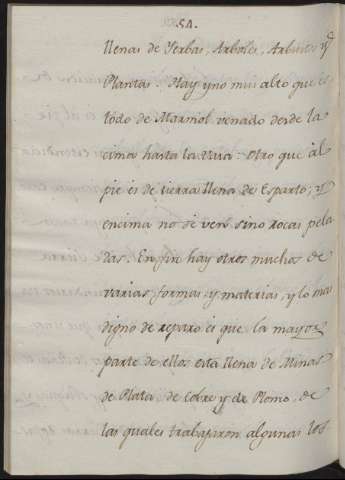 54.
llenas de Yerbas, Arboles, Arbustos y
Plantas. Hay uno mui alto que es
todo de Marmol venado desde la
cima hasta la
Otro que al
pie es de tierra llena de Esparto, y
encima no se ven sino rocas pela
das. En fin hay otros muchos de
varias formas y materias, y lo mas
digno de reparo es que la mayor
parte de ellos esta llena de Minas
de Plata, de Cobre y de Plomo, de
las quales trabajaron algunas los